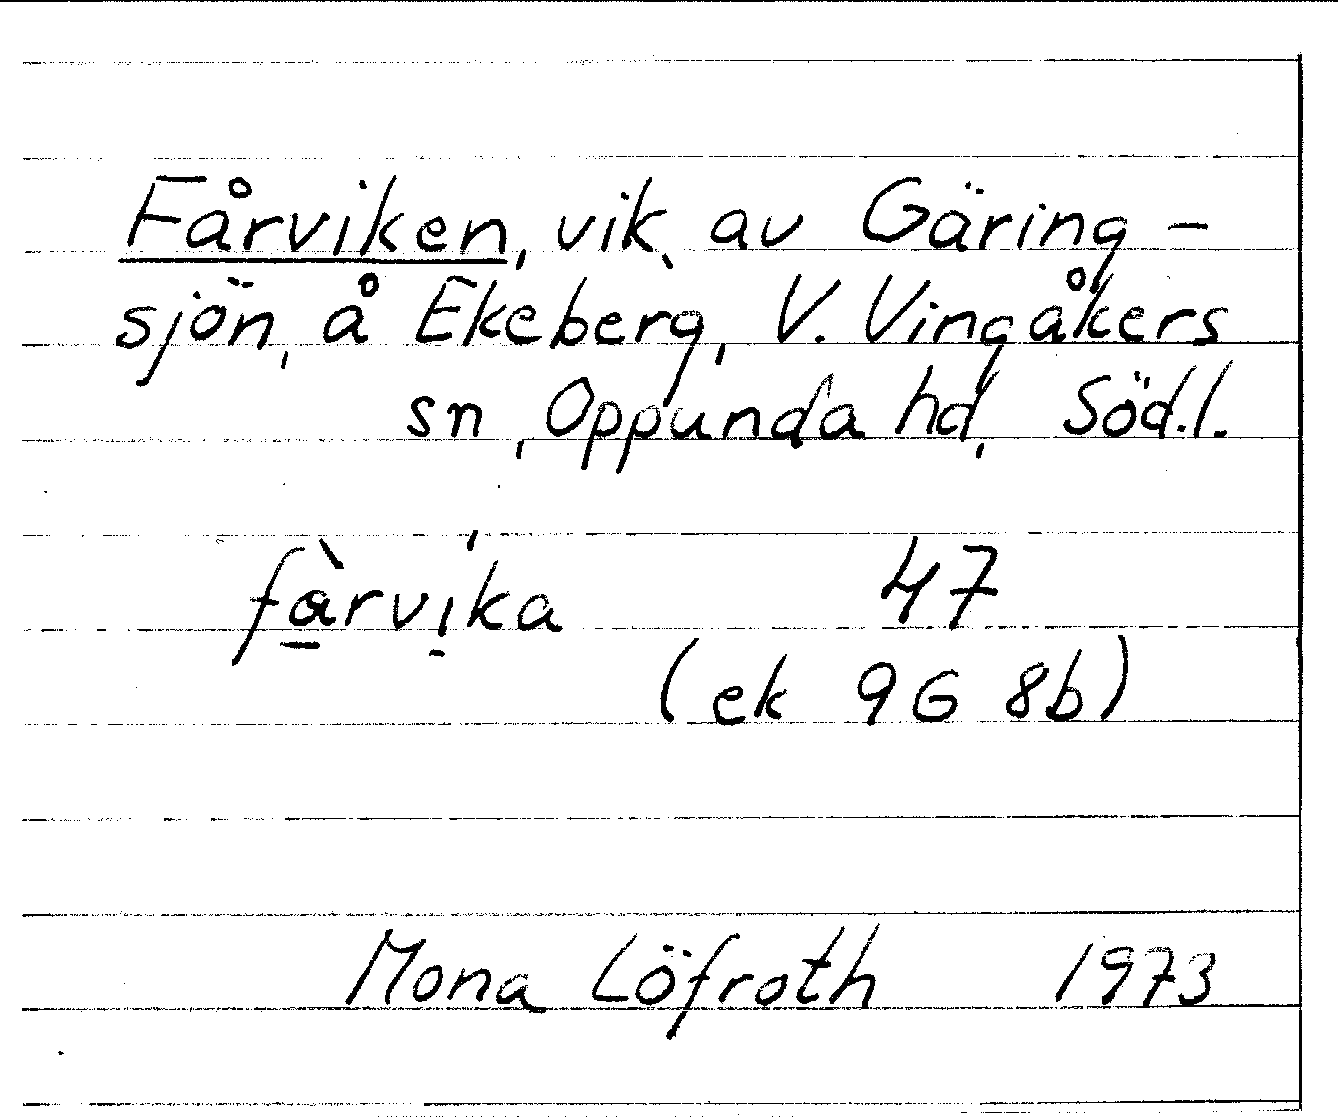 Fårviken, vik av Gäring-
sjön, å Ekeberg, V. Vingåkers
sn, Oppunda hd, Söd.l.
fàrvika 47
(ek 9G 8b)
Mona Löfroth 1973